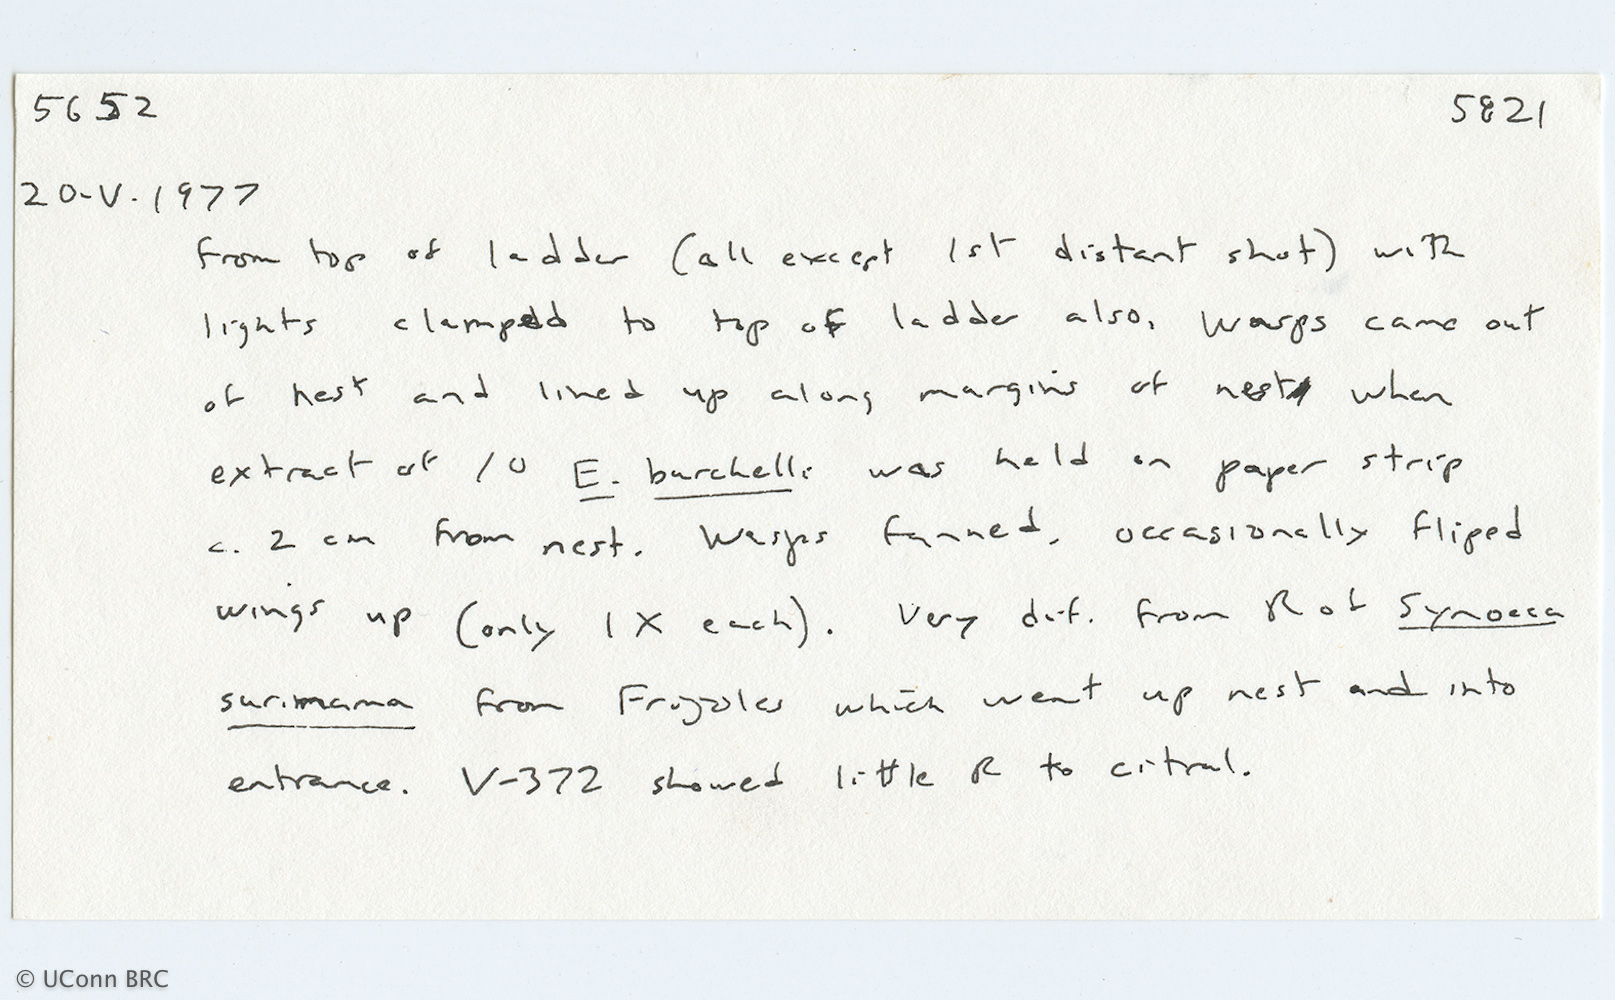 5652 5821
20-V-1977
From top of ladder (all except 1st distant shot) with
lights clamped to top of ladder also. Wasps came out
of nest and lined up along margins of nest when
extract of 10 E. burchelli was held on paper strip
c. 2 cm from nest. Wasps fanned, occasionally fliped
wings up (only 1X each). Very dif. from R of Synoeca
surinama from Frijoles which went up nest and into
entrance. V-372 showed little R to citral.
© UConn BRC